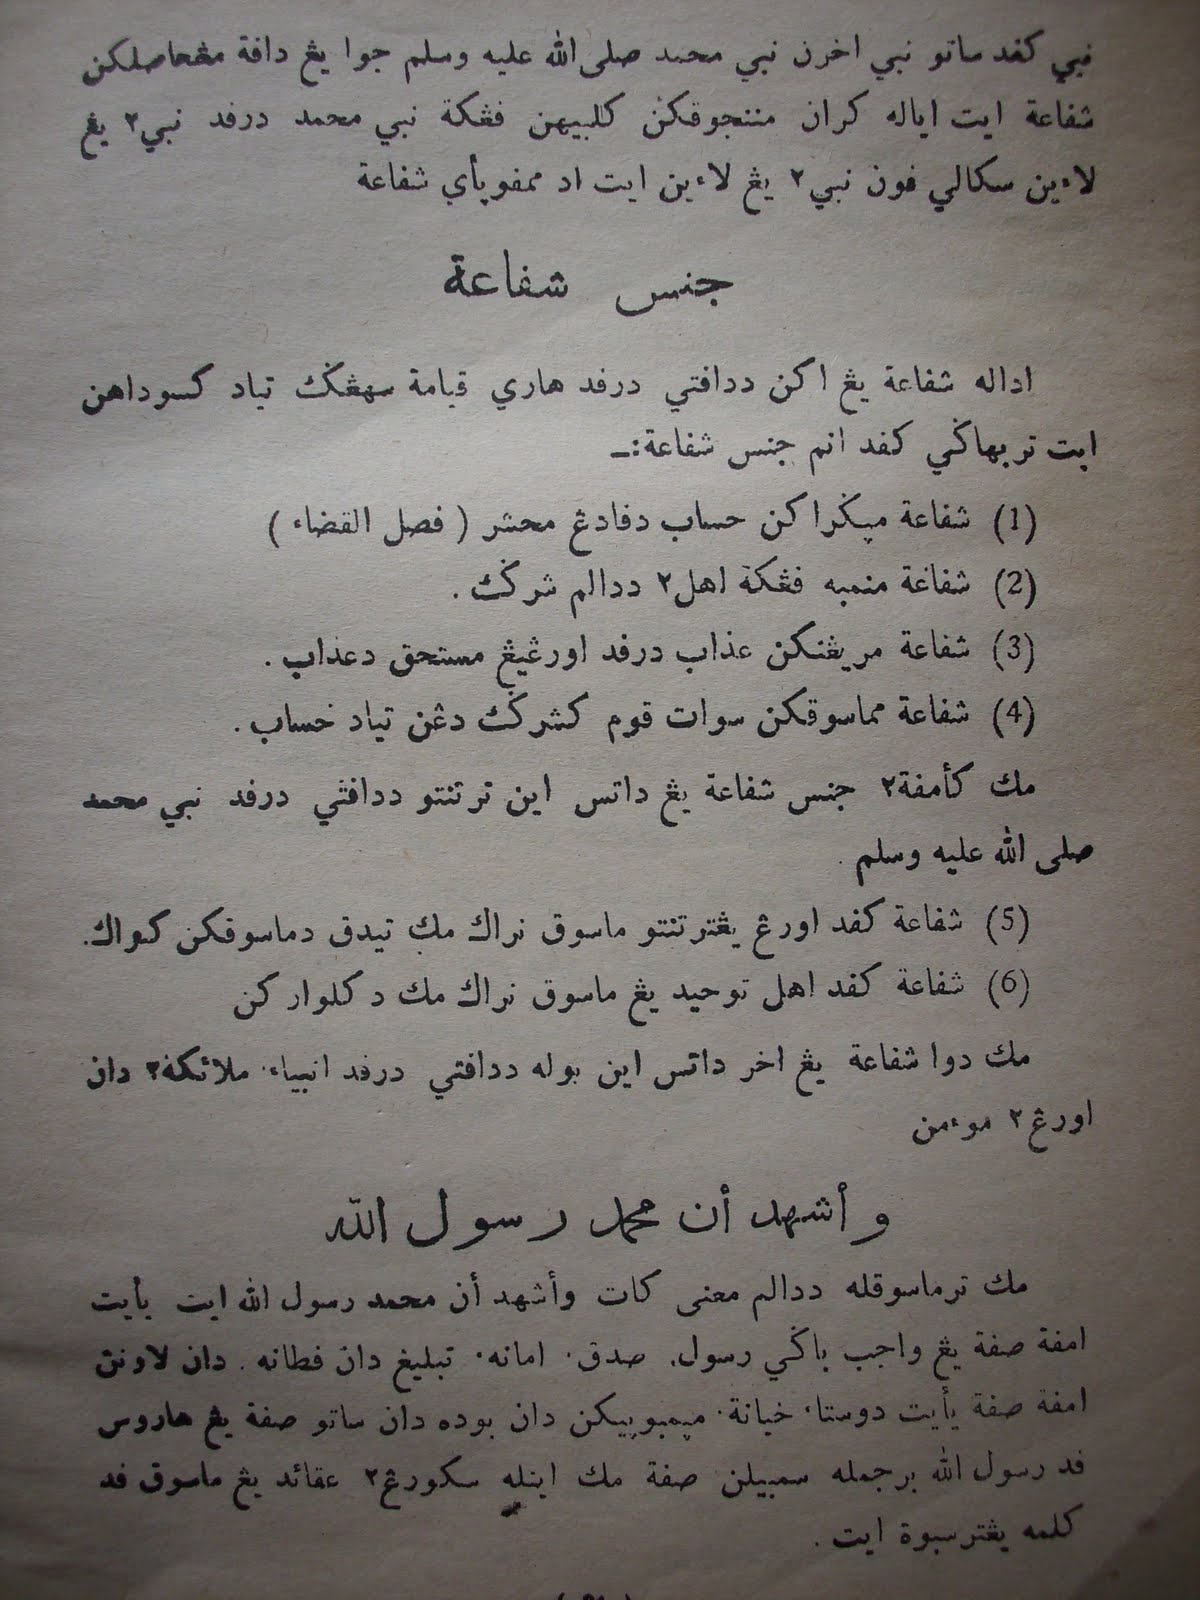 نبي كفد ساتو نبي اخرن نبي محمد صلى الله عليه وسلم جوا يڠ دافة مڠحاصلكن
شفاعة ايت اياله كران مننجوقكن كلبيهن فڠكة نبي محمد درفد نبي٢ يڠ
لاءين سكالي فون نبي٢ يڠ لاءين ايت اد ممفوپأي شفاعة
جنس شفاعة
اداله شفاعة يڠ اكن ددافتي درفد هاري قيامة سهڠڬك تياد كسوداهن
ايت تربهاڬي كفد انم جنس شفاعة:ـ
(1) شفاعة ميڬراكن حساب دفادڠ محشر ( فصل القضاء )
(2) شفاعة منمبه فڠكة اهل٢ ددالم شرڬ .
(3) شفاعة مريڠنكن عذاب درفد اورڠيڠ مستحق دعذاب .
(4) شفاعة مماسوقكن سوات قوم كشرڬ دڠن تياد حساب .
مك كأمفة٢ جنس شفاعة يڠ داتس اين ترتنتو ددافتي درفد نبي محمد
صلى الله عليه وسلم .
(5) شفاعة كفد اورڠ يڠترتنتو ماسوق نراك مك تيدق دماسوقكن كنراك.
(6) شفاعة كفد اهل توحيد يڠ ماسوق نراك مك دكلواركن
مك دوا شفاعة يڠ اخر داتس اين بوله ددافتي درفد انبياء. ملائكة٢ دان
اورڠ٢ موءمن
وأشهد أن محمد رسول الله
مك ترماسوقله ددالم معنى كات وأشهد أن محمد رسول الله ايت يأيت
امفة صفة يڠ واجب باڬي رسول. صدق. امانه. تبليغ دان فطانه. دان لاونن
امفة صفة يأيت دوستا. خيانة. ميمبوپيكن دان بوده دان ساتو صفة يڠ هاروس
فد رسول الله برجمله سمبيلن صفة مك اينله سكورڠ٢ عقائد يڠ ماسوق فد
كلمه يڠترسبوة ايت .